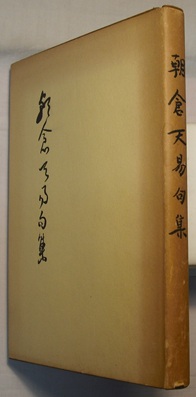 朝倉天易句集
朝倉天易句集